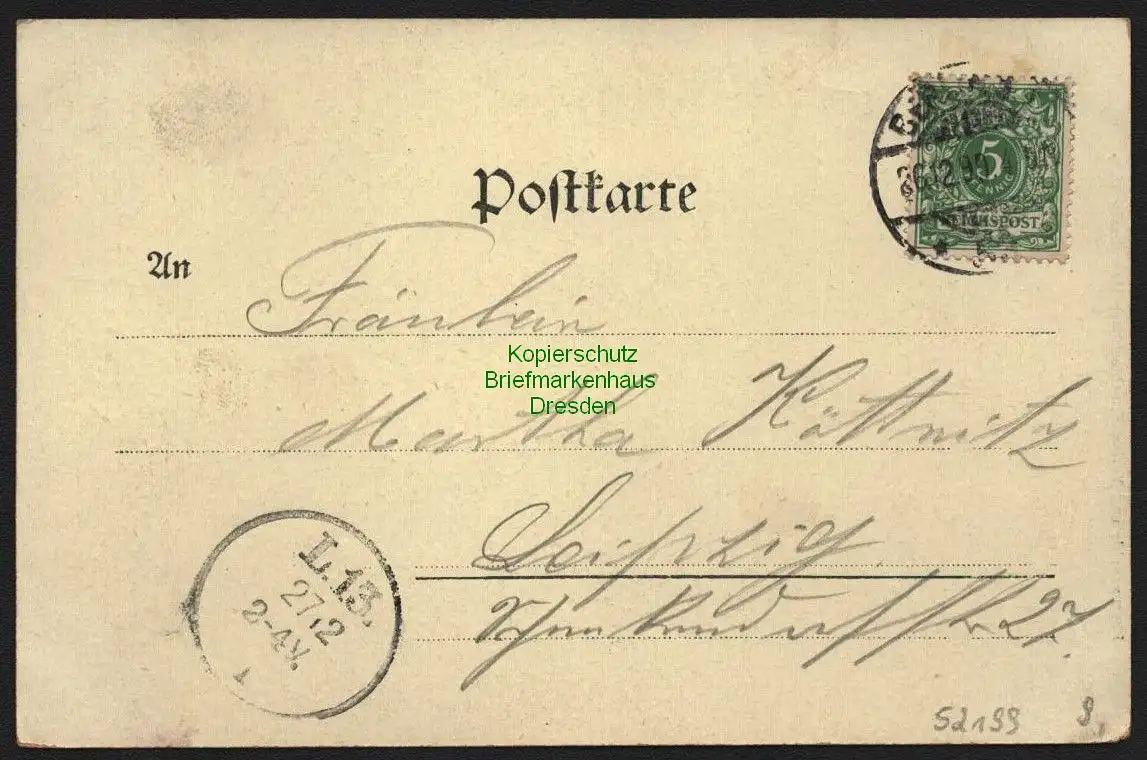 Postkarte
5
PFENNIG
REICHSPOST
An
Fräulein
Kopierschutz
Briefmarkenhaus
Dresden
Martha Köttnitz
Leipzig
27.
L.13.
27,2
2-4N.
1
52199 9,